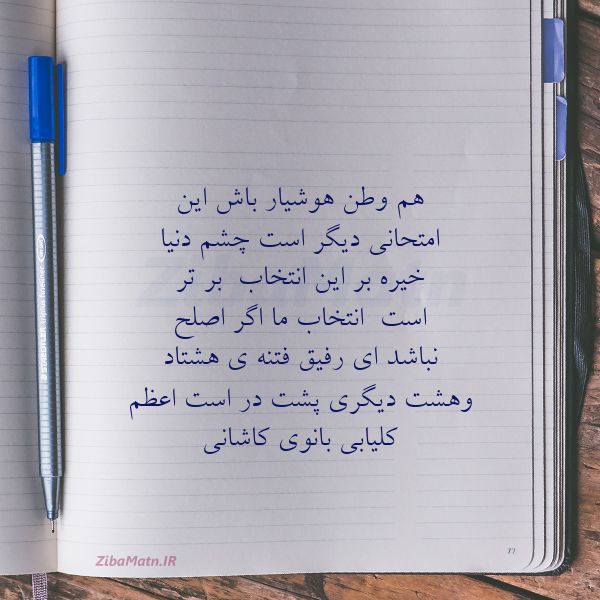 هم وطن هوشیار باش این
امتحانی دیگر است چشم دنیا
خیره بر این انتخاب بر تر
است انتخاب ما اگر اصلح
نباشد ای رفیق فتنه ی هشتاد
وهشت دیگری پشت در است اعظم
کلیابی بانوی کاشانی
ZibaMatn.IR
ZibaMatn
77